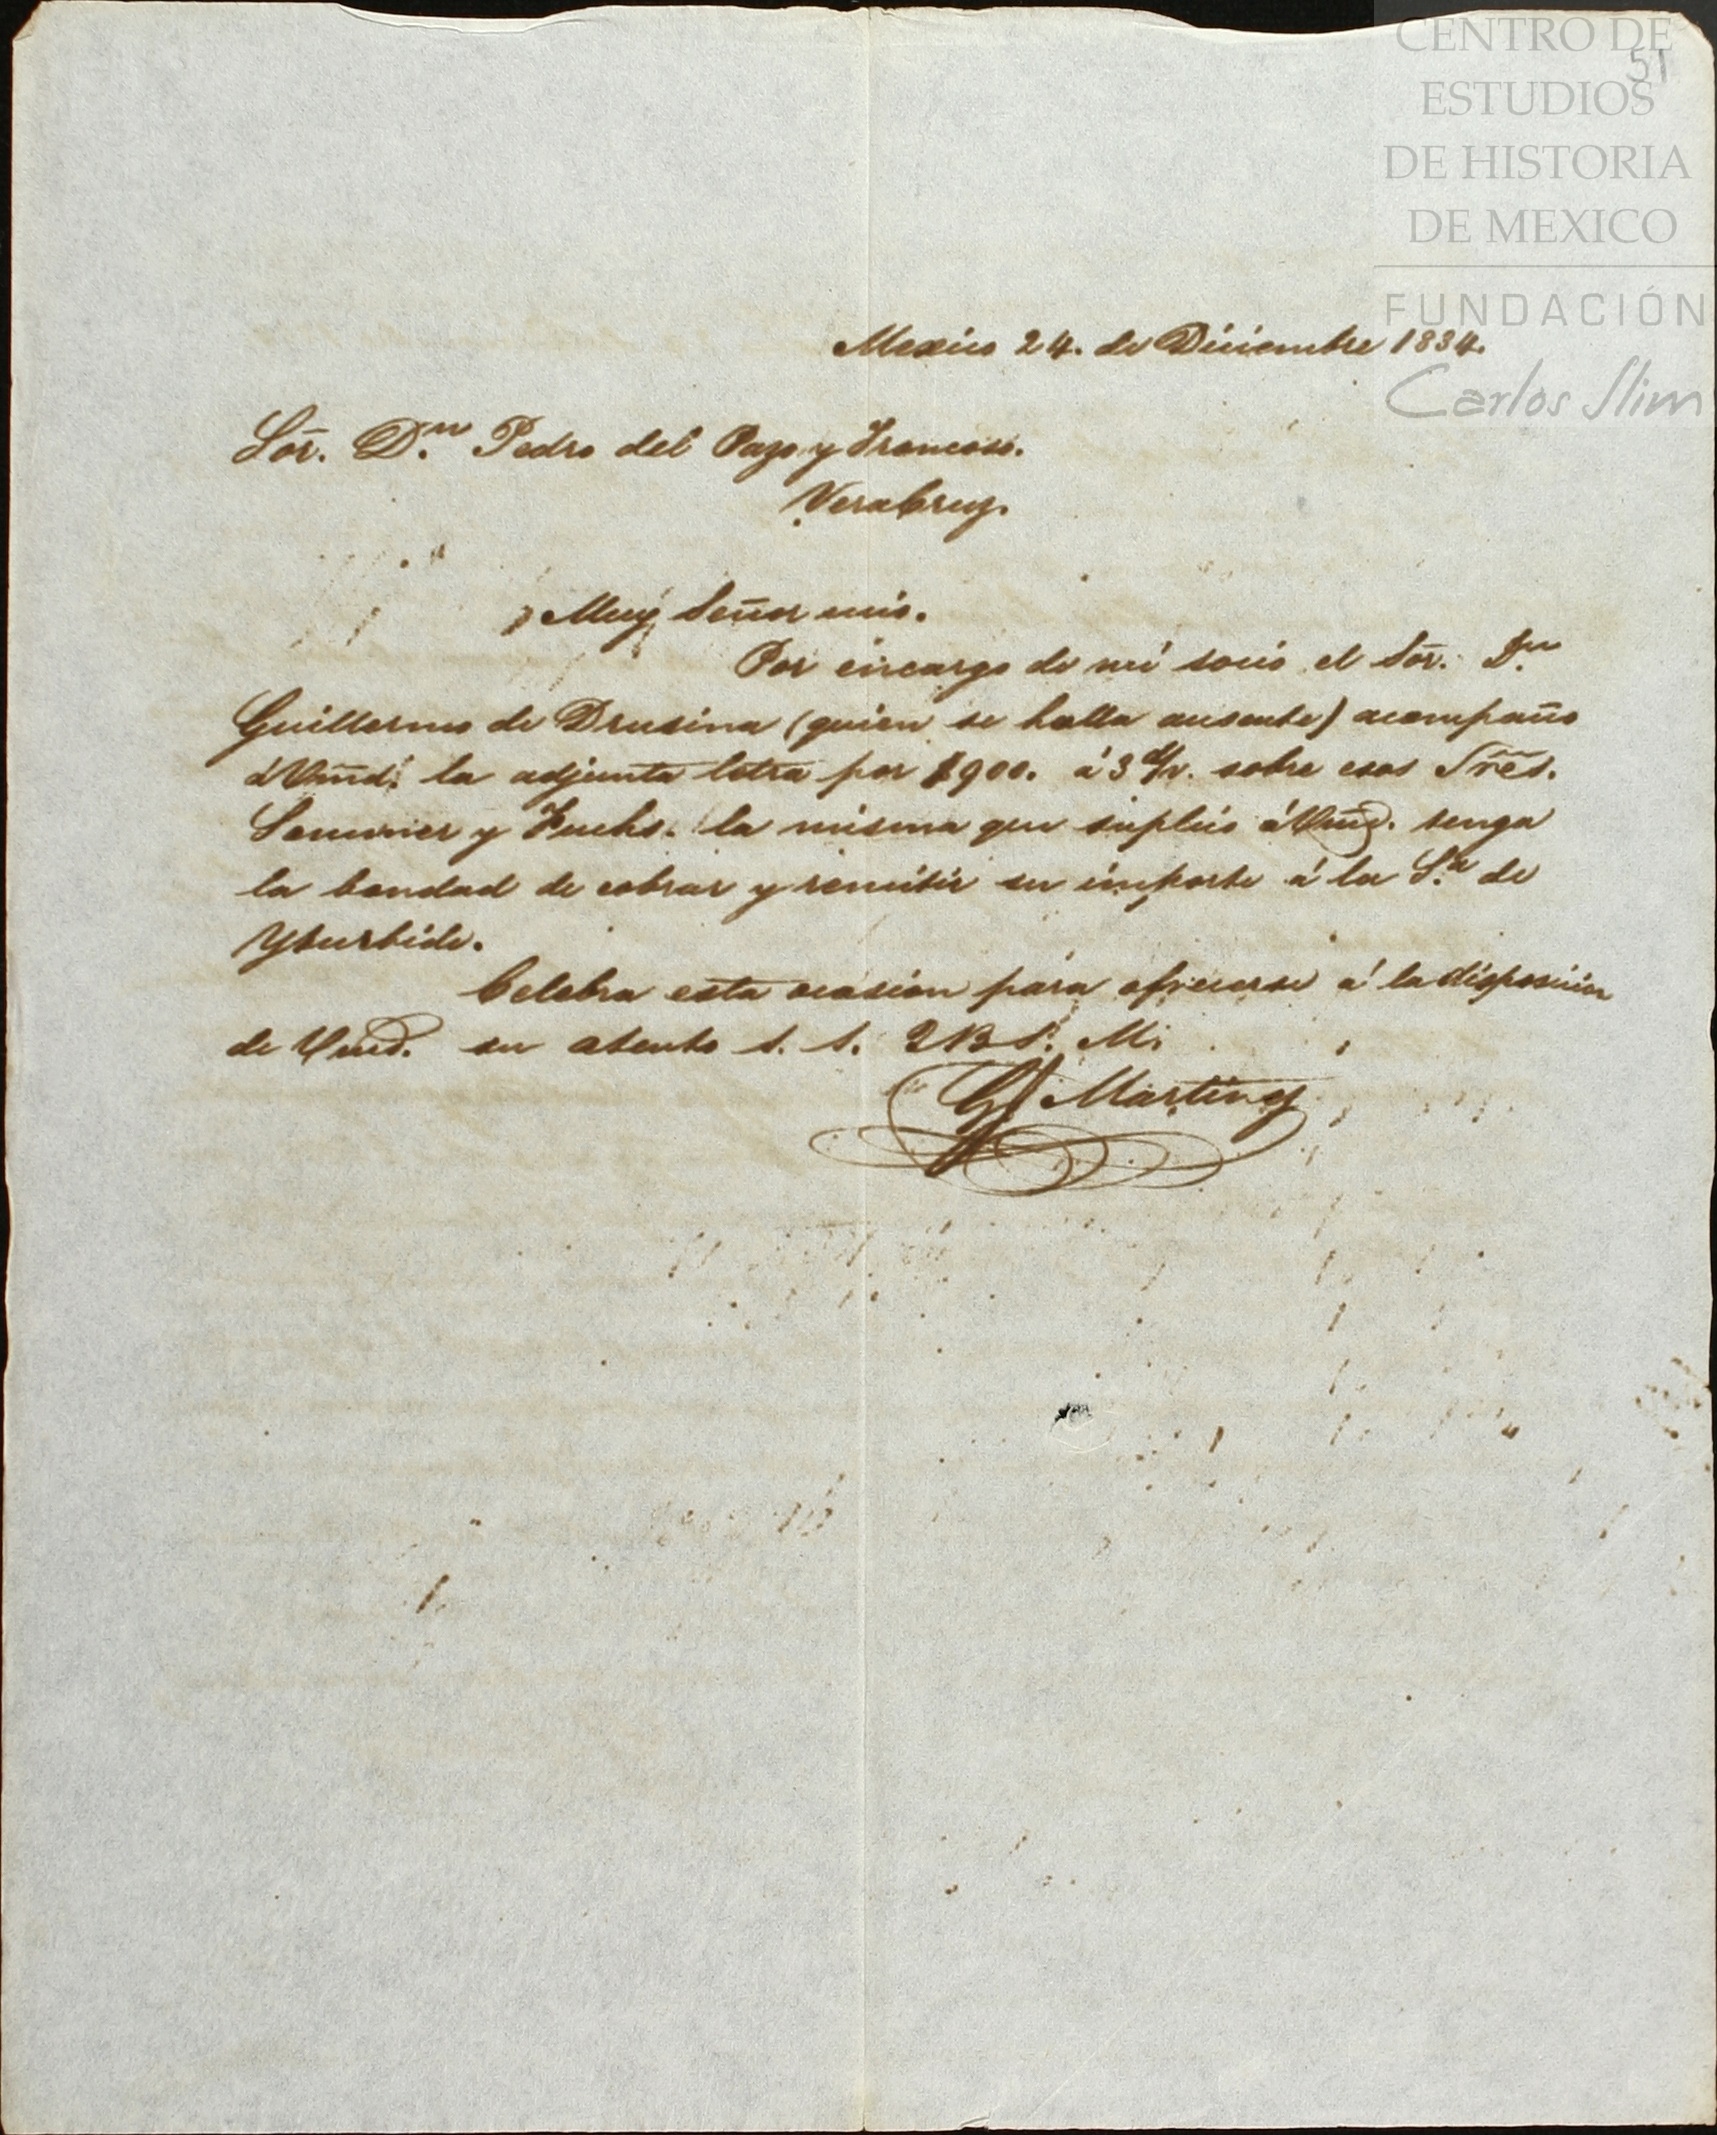 CENTRO DE
51
ESTUDIOS
DE HISTORIA
DE MEXICO
FUNDACIÓN
Carlos Slim
Mexico 24. de Diciembre 1834.
Sor. Dn. Pedro del Pazo y Troncoso.
VeraCruz.
Muy Señor mio.
Por encargo de mi socio el Sor. Dn.
Guillermo de Drusina (quien se halla ausente) acompaño
á Vmd. la adjunta letra por $900. á 3 d/v. sobre esos Sres.
Sommer y Fuchs. la misma que suplico á Vmd. tenga
la bondad de cobrar y remitir su importe á la Sa. de
Yturbide.
Celebra esta ocasion para ofrecerse á la disposicion
de Vmd. su atento s. s. Q B S. M.
Martinez